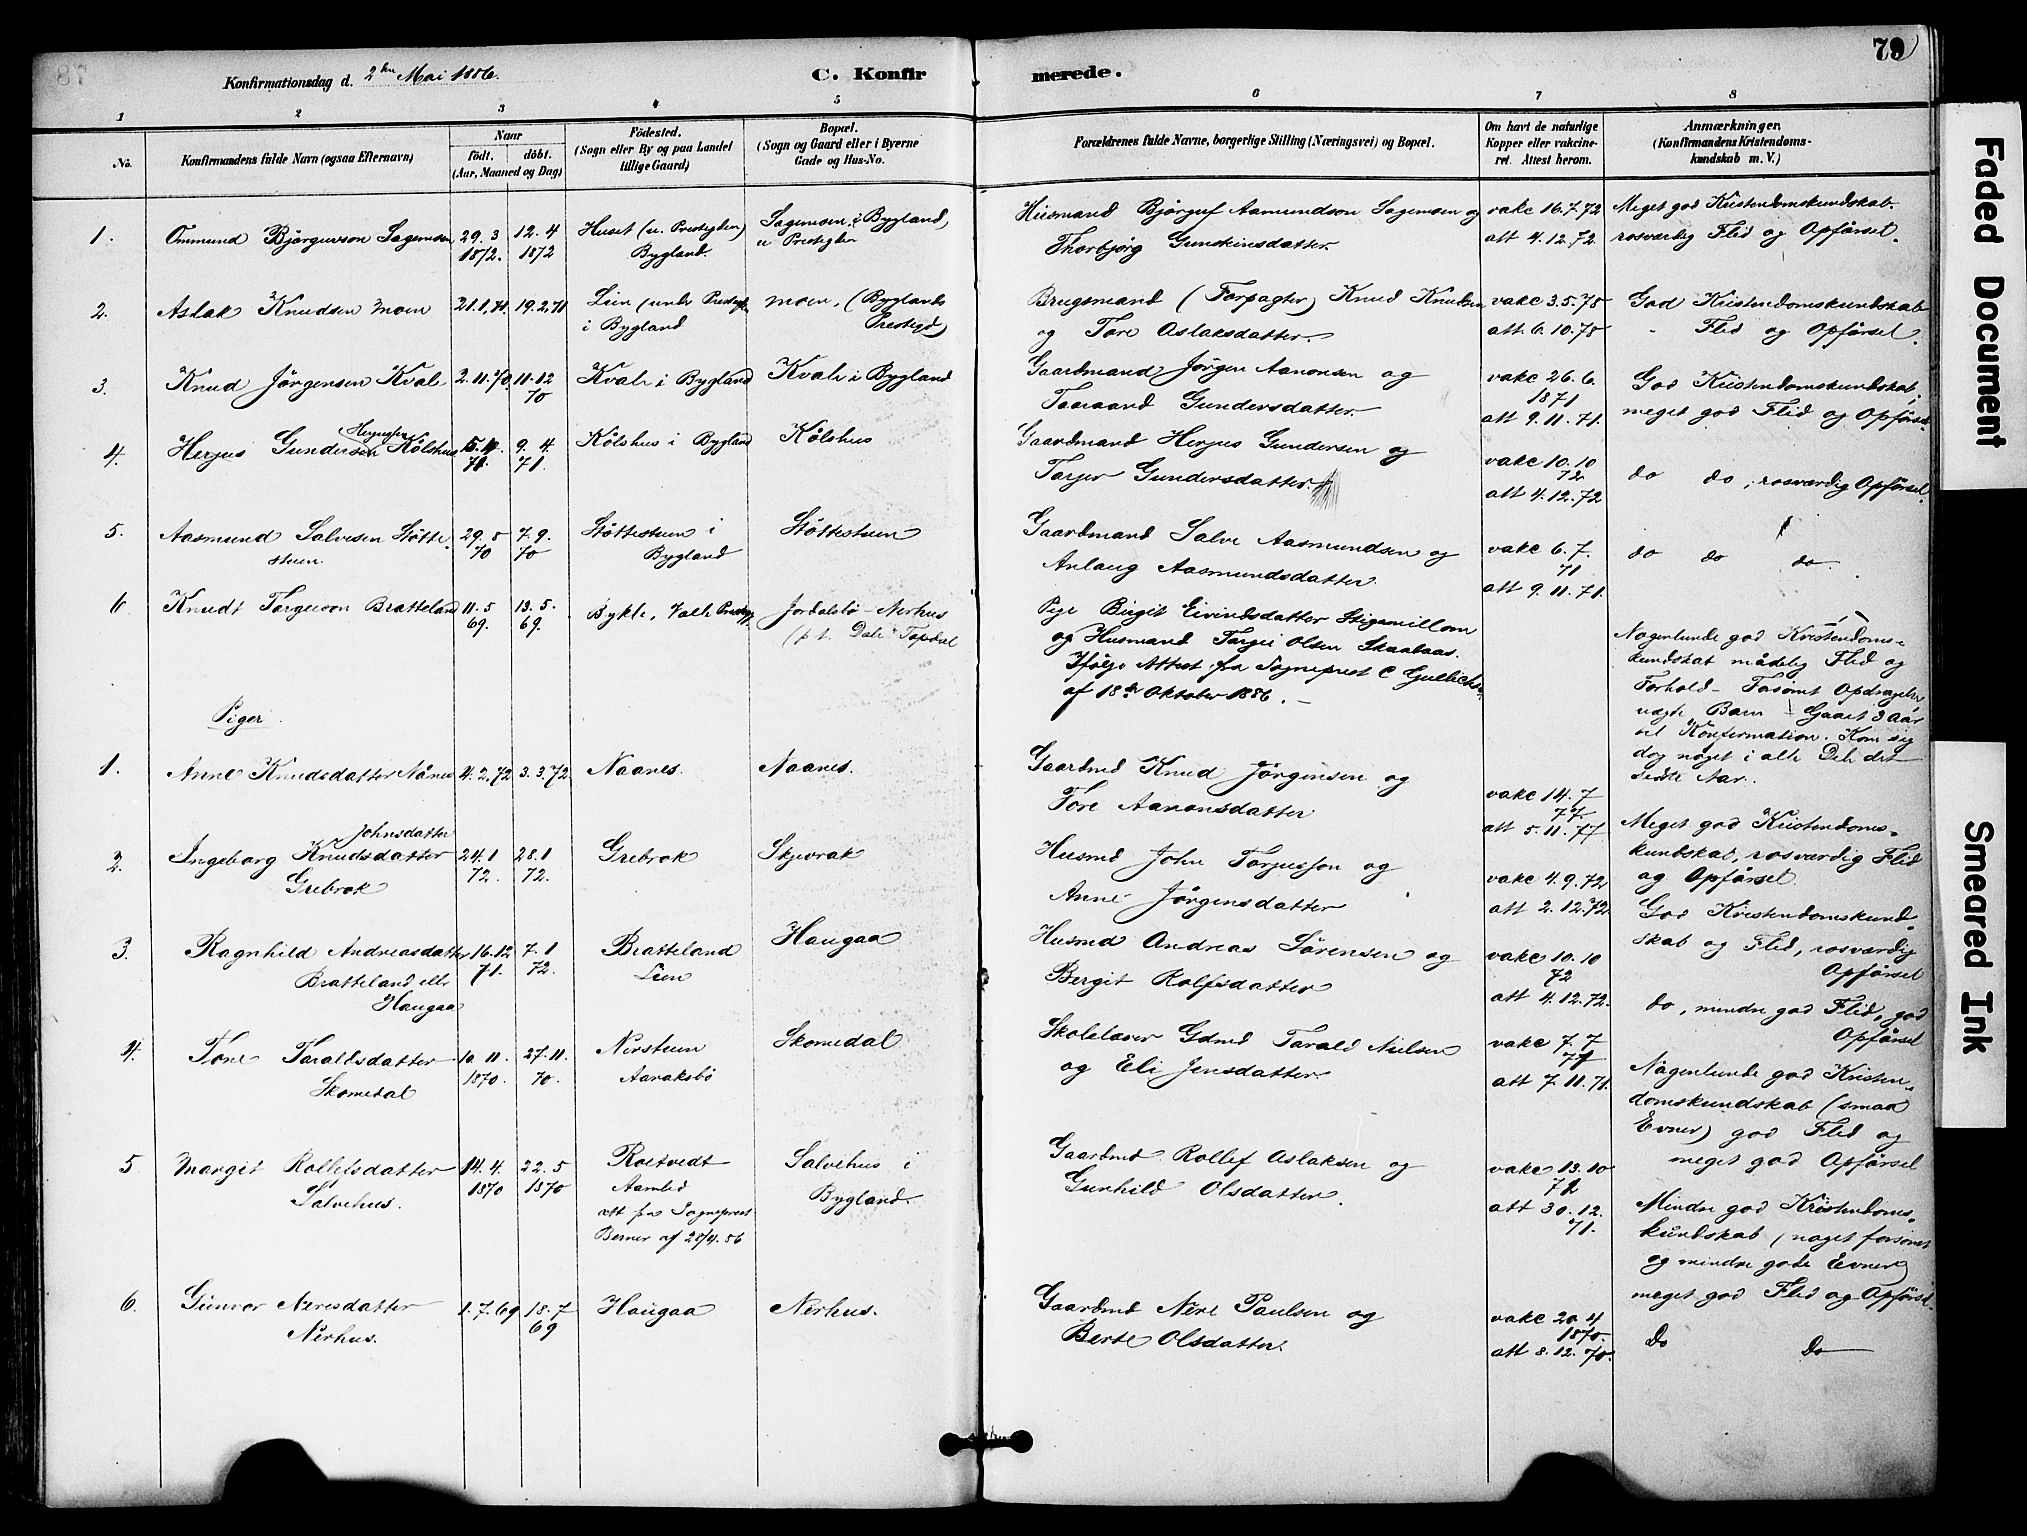 79
Konfirmationsdag d. 2den Mai 1886.
C. Konfirmerede.
1 2 3 4 5 6 7 8
No.
Konfirmandens fulde Navn (ogsaa Efternavn)
Naar
födt. döbt.
(Aar, Maaned og Dag)
Födested.
(Sogn eller By og paa Landet
tillige Gaard)
Bopæl.
(Sogn og Gaard eller i Byerne
Gade og Hus-No.
Forældrenes fulde Navne, borgerlige Stilling (Næringsvei) og Bopæl.
Om havt de naturlige
Kopper eller vakcine-
ret. Attest herom.
Anmærkninger.
(Konfirmandens Kristendoms-
kundskab m. V.)
1. Ommund Björguvson Sagemoen 29.3 1872. 12.4 1872
Huset (u. Prestegden) Bygland.
Sagemoen i Bygland, u Prestegden
Husmand Björguf Aamundson Sagemoen og
Thorbjörg Gunskinsdatter.
vakc 16.7.72
att 4.12.72
Meget god Kristendomskundskab.
rosværdig Flid og Opförsel.
2. Aslak Knudsen Moen 21.1.71. 19.2.71
Lien (under Prestegden i Bygland
Moen, (Byglands Prestegd)
Brugsmand (Forpagter) Knud Knudsen
og Tore Aslaksdatter.
vakc 3.5.78
att. 6.10.78
God Kristendomskundskab
" Flid og Opförsel.
3. Knud Jörgensen Kvale 2.11.70 11.12 70
Kvale i Bygland
Kvale i Bygland
Gaardmand Jörgen Aanonsen og
Taaraand Gundersdatter.
vakc 26.6. 1871
att 9.11.71.
God Kristendomskundskab,
meget god Flid og Opförsel.
4. Herjus Gundersen Herjussen Kölshus 15. 71. 9.4. 71.
Kölshus i Bygland
Kölshus
Gaardmand Herjus Gundersen og
Tarjer Gundersdatter.
vakc 10.10 72
att 4.12.72
do do, rosværdig Opförsel.
5. Aasmund Salvesen Stötte-
stuen.
29.8 70 7.9. 70
Stöttestuen i Bygland
Stöttestuen
Gaardmand Salve Aasmundsen og
Anlaug Aasmundsdatter
vakc 6.7. 71
att 9.11.71.
do do do.
6 Knudt Targeison Bratteland 11.5 69. 13.5. 69.
Bykle, Valle Prestegj.
Jordalsbö - Nerhus
(p t. Dale i Topdal
Pige Birgit Eivindsdatter Stigamillom
og Husmand Targei Olsen Skaalaas.
Ifölge Attest fra Sogneprest C Gullichs.
af 18de Oktober 1886.
Nogenlunde god Kristendoms-
kundskab mådelig Flid og
Forhold - Forsömt Opdragelse,
uægte Barn - Gaaet 3 Aar
til Konfirmation. Kom sig
dog noget i alle Dele det
sidste Aar.
Piger.
1. Anne Knudsdatter Nånes 4.2.72 3.3.72.
Naanes.
Naanes.
Gaardmd Knud Jörgensen og
Tore Aanonsdatter
vakc 14.7 77
att 5.11.77
Meget god Kristendoms-
kundskab, rosværdig Flid
og Opförsel.
2. Ingeborg Knudsdatter Johnsdatter
Grebrok
24.1 72. 28.1 72.
Grebrok
Skjevrak
Husmd John Torjusson og
Anne Jörgensdatter
vakc 4.9.72
att 2.12.72.
God Kristendomskund-
skab og Flid, rosværdig
Opförsel
3. Ragnhild Andreasdatter
Bratteland eller
Haugaa
16.12 71. 7.1 72.
Bratteland
Lien
Haugaa
Husmd Andreas Sörensen og
Bergit Rolfsdatter
vakc 10.10 72
att 4.12.72.
do, mindre god Flid, god
Opförsel
4. Tone Taraldsdatter
Skomedal
10.11. 1870. 27.11. 70.
Nerstuen
Aaraksbö
Skomedal
Skolelærer Gdmd Tarald Nielsen
og Eli Jensdatter.
vakc 7.7 71
att 7.11.71.
Nogenlunde god Kristen-
domskundskab (smaa
Evner) god Flid og
meget god Opförsel
5. Margit Rollefsdatter
Salvehus.
14.4. 1870 22.5 1870
Roetvedt
Aamlid
att fra Sogneprest
Berner af 28/4.86
Salvehus i
Bygland.
Gaardmd Rollef Aslaksen og
Gunhild Olsdatter.
vakc 13.10 71
att 30.12. 71.
Mindre god Kristendoms-
kundskab (noget forsömt
og mindre gode Evner)
meget god Flid og Opförsel.
6. Gunvor Neresdatter
Nerhus.
1.7.69 18.7 69
Haugaa
Nerhus.
Gaardmd Nere Paulsen og
Berte Olsdatter.
vakc 20.4 1870.
att 8.12.70.
Do Do
Faded Document
Smeared Ink